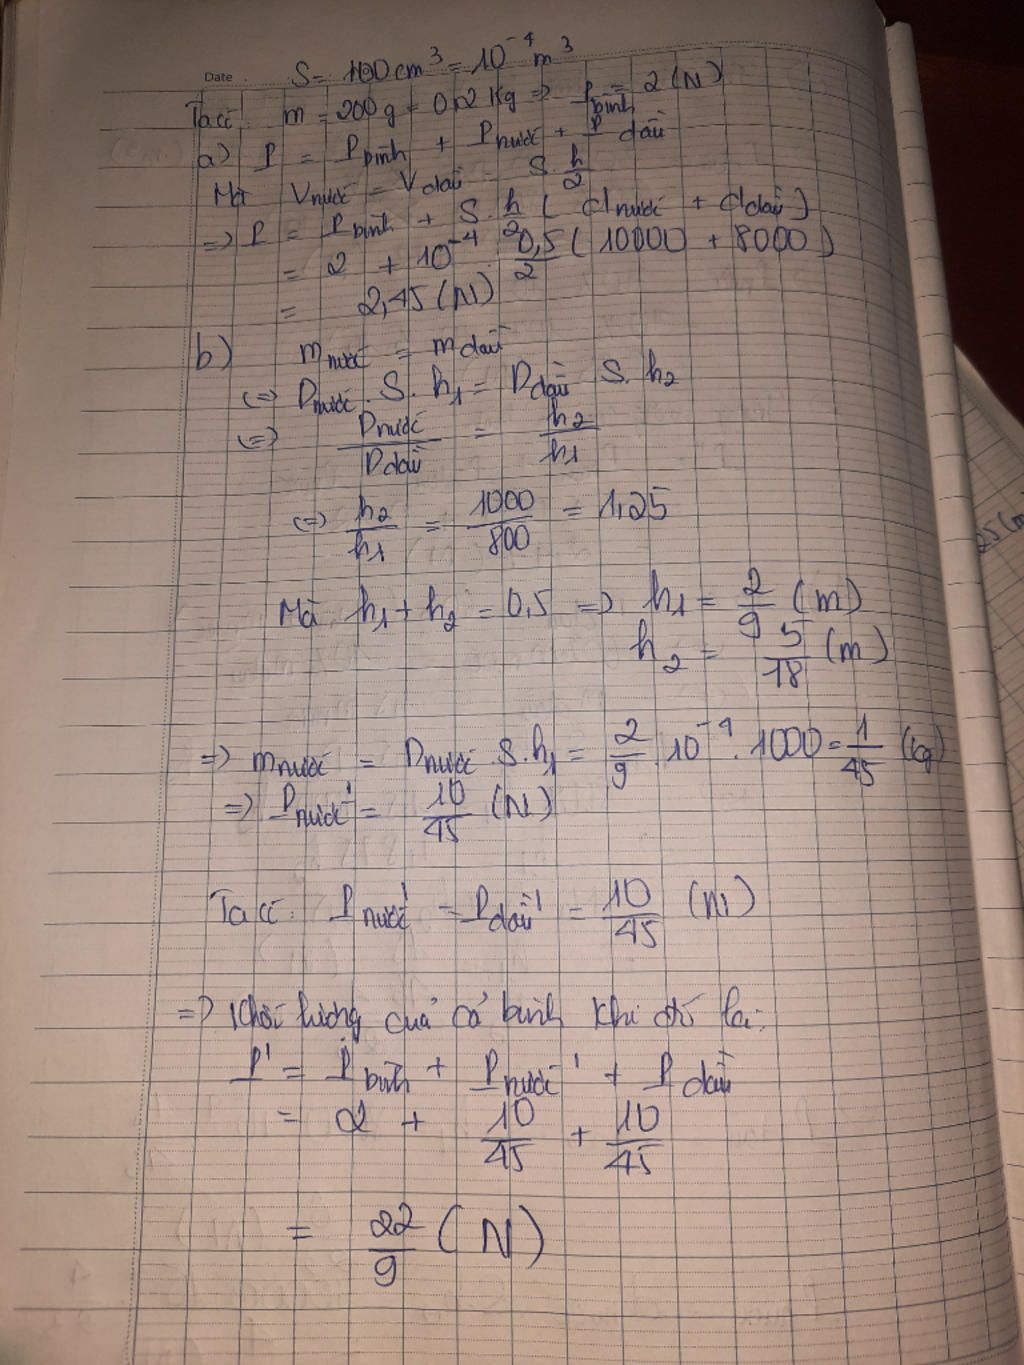 Date
S = 100cm³ = 10⁻⁴ m³
Ta có: m = 200g = 0,2 Kg => Pbình = 2 (N)
a) P = Pbình + Pnước + P dầu
Mà Vnước = Vdầu = S h/2
=> P = Pbình + S. h/2 ( dnước + ddầu )
= 2 + 10⁻⁴ . 0,5/2 ( 10000 + 8000 )
= 2,45 (N)
b) mnước = mdầu
<=> Dnước . S. h₁ = Ddầu S. h₂
<=> Dnước/Ddầu = h₂/h₁
<=> h₂/h₁ = 1000/800 = 1,25
Mà h₁ + h₂ = 0,5 => h₁ = 2/9 (m)
h₂ = 5/18 (m)
=> mnước = Dnước . S. h₁ = 2/9 . 10⁻⁴ . 1000 = 1/45 (kg)
=> Pnước' = 10/45 (N)
Ta có: Pnước' = Pdầu' = 10/45 (N)
=> Khối lượng của cả bình khi đó là:
P' = Pbình + Pnước' + P dầu
= 2 + 10/45 + 10/45
= 22/9 (N)